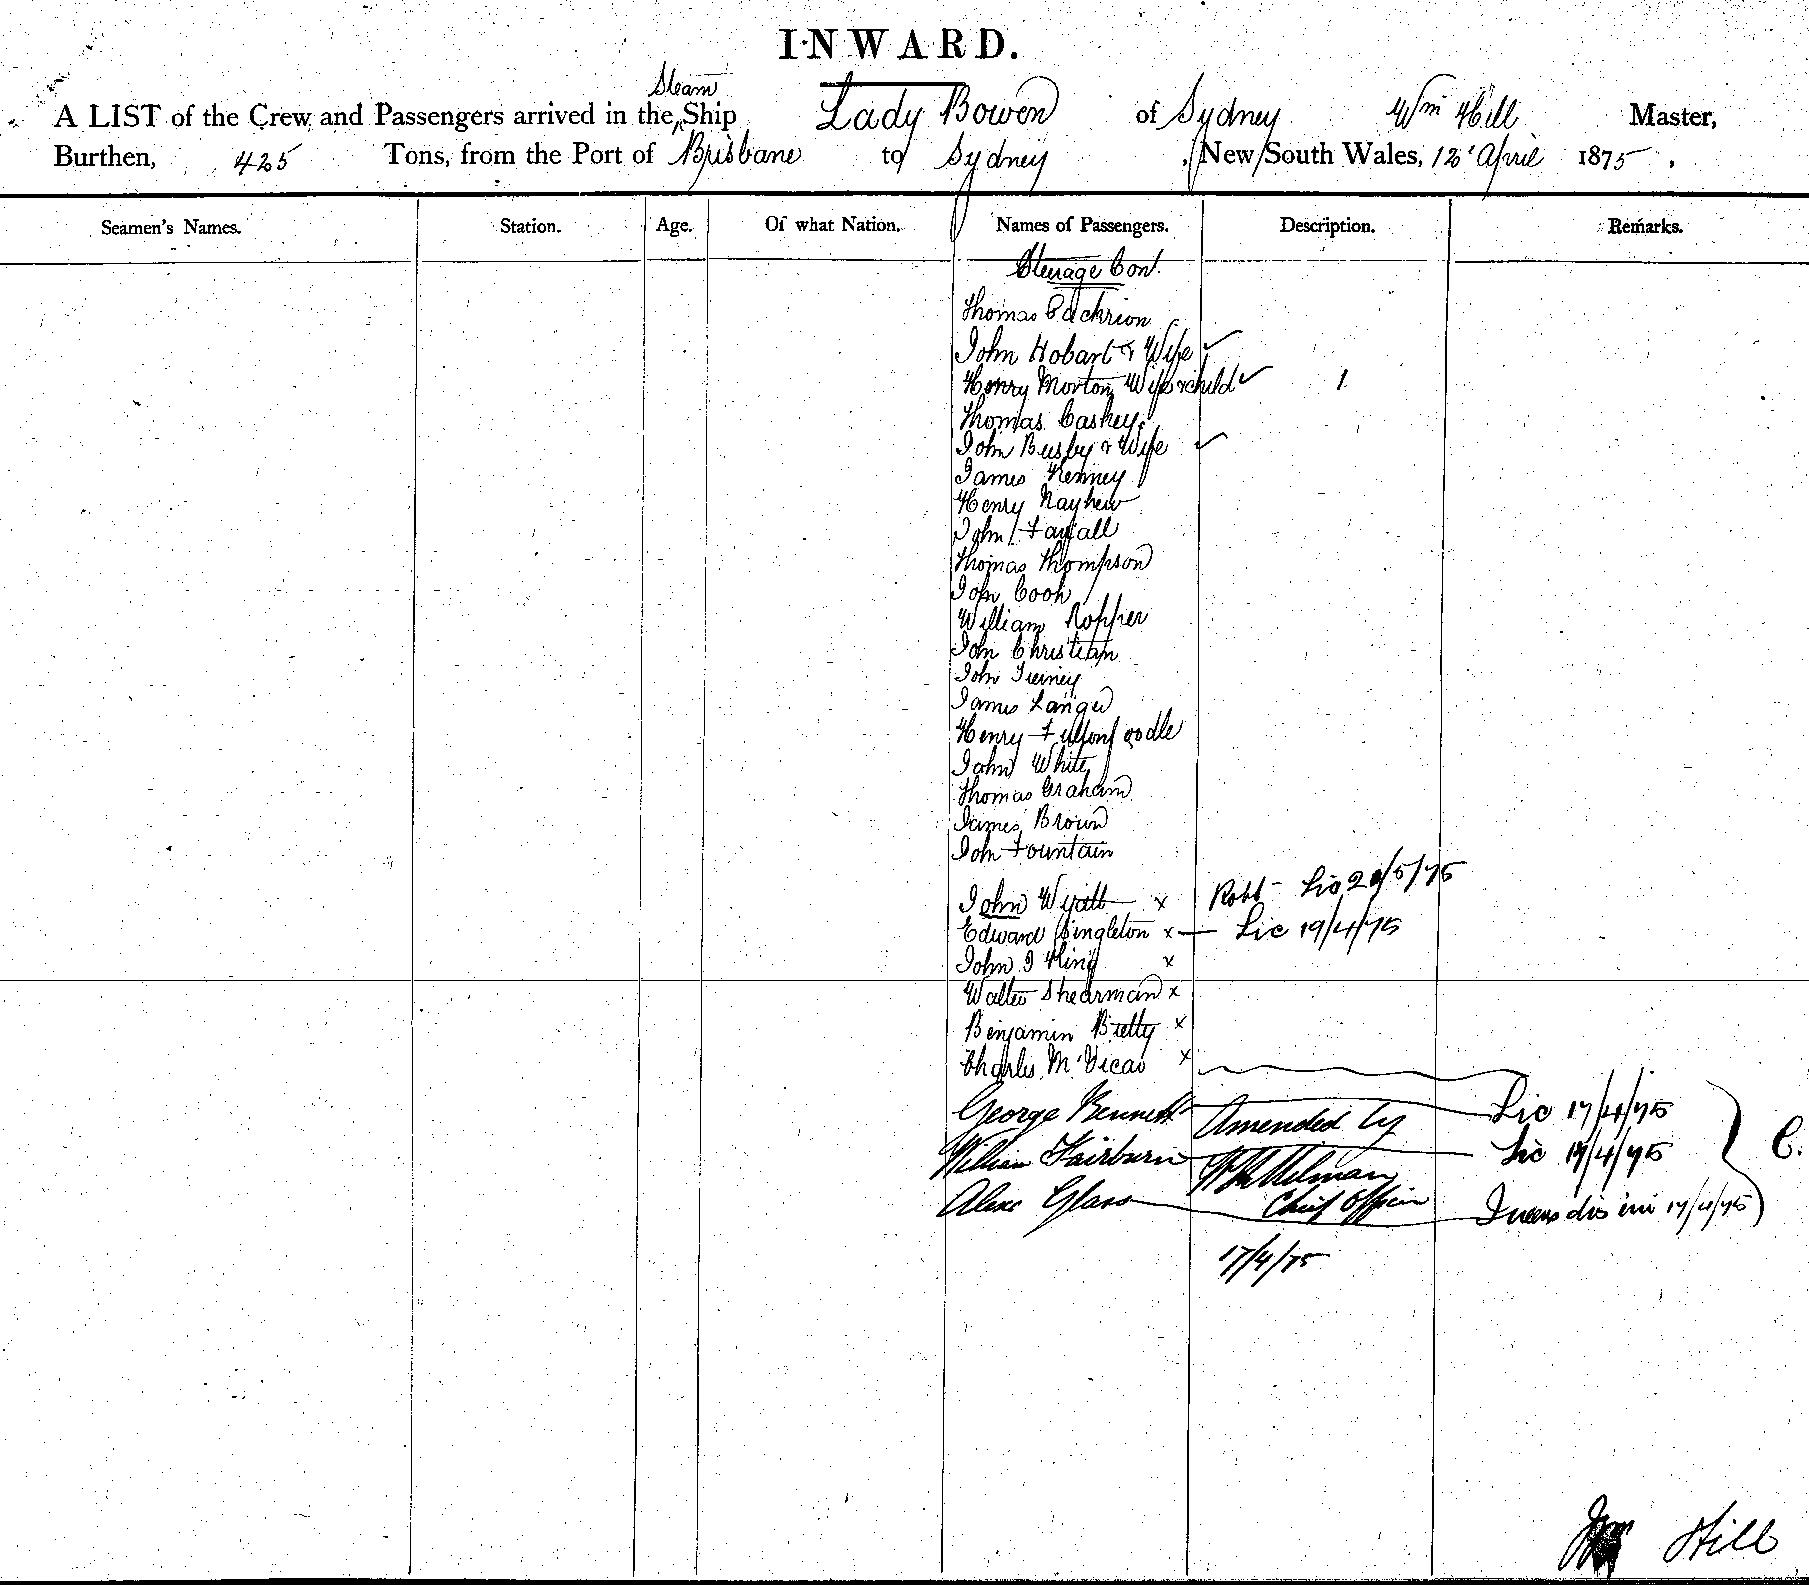 INWARD.
Steam
A LIST of the Crew and Passengers arrived in the Ship Lady Bowen of Sydney Wm Hill Master,
Burthen, 425 Tons, from the Port of Brisbane to Sydney , New South Wales, 12' April 1875 .
Seamen's Names. Station. Age. Of what Nation. Names of Passengers. Description. Remarks.
Steerage Con.
Thomas
John Hobart & Wife ✓
Henry Morton Wife & child ✓ 1
Thomas Caskey
John Busby & Wife ✓
James Kenney
Henry Mayhew
John
Thomas Thompson
John Cook
William Ropper
John Christian
John Tierney
James
Henry
John White
Thomas Graham
James Brown
John Fountain
John Wyatt x Robt - Lic 20/5/75
Edward Singleton x — Lic 19/4/75
John J King x
Walter Shearman x
Benjamin x
Charles McVicar x
George Bennett Amended by Lic 17/4/75
William Fairburn Lic 19/4/75 C.
Alexr Glass Chief Officer 17/4/75
17/4/75
Wm Hill